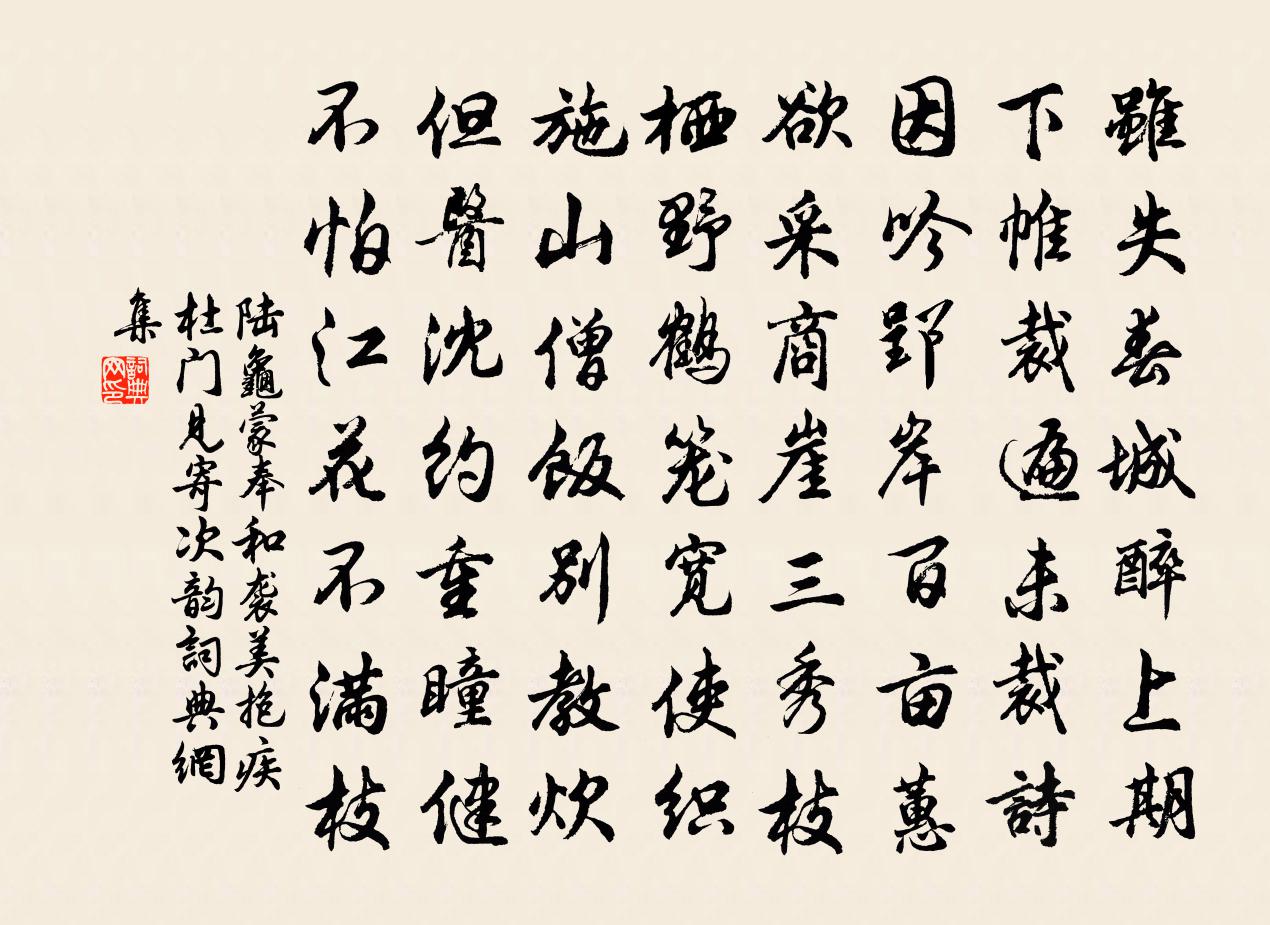 雖失春城醉上期
下帷裁遍未裁詩
因吟郢岸百亩蕙
欲采商崖三秀枝
栖野鹤笼宽使织
施山僧飯别教炊
但醫沈约重瞳健
不怕江花不满枝
陆龜蒙奉和袭美抱疾
杜门見寄次韵詞典網
集
詞典网印